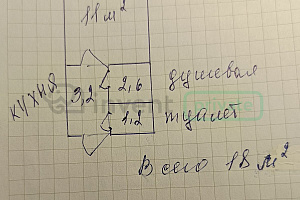 11 м²
кухня
3,2
2,6 душевая
1,2 туалет
Всего 18 м²